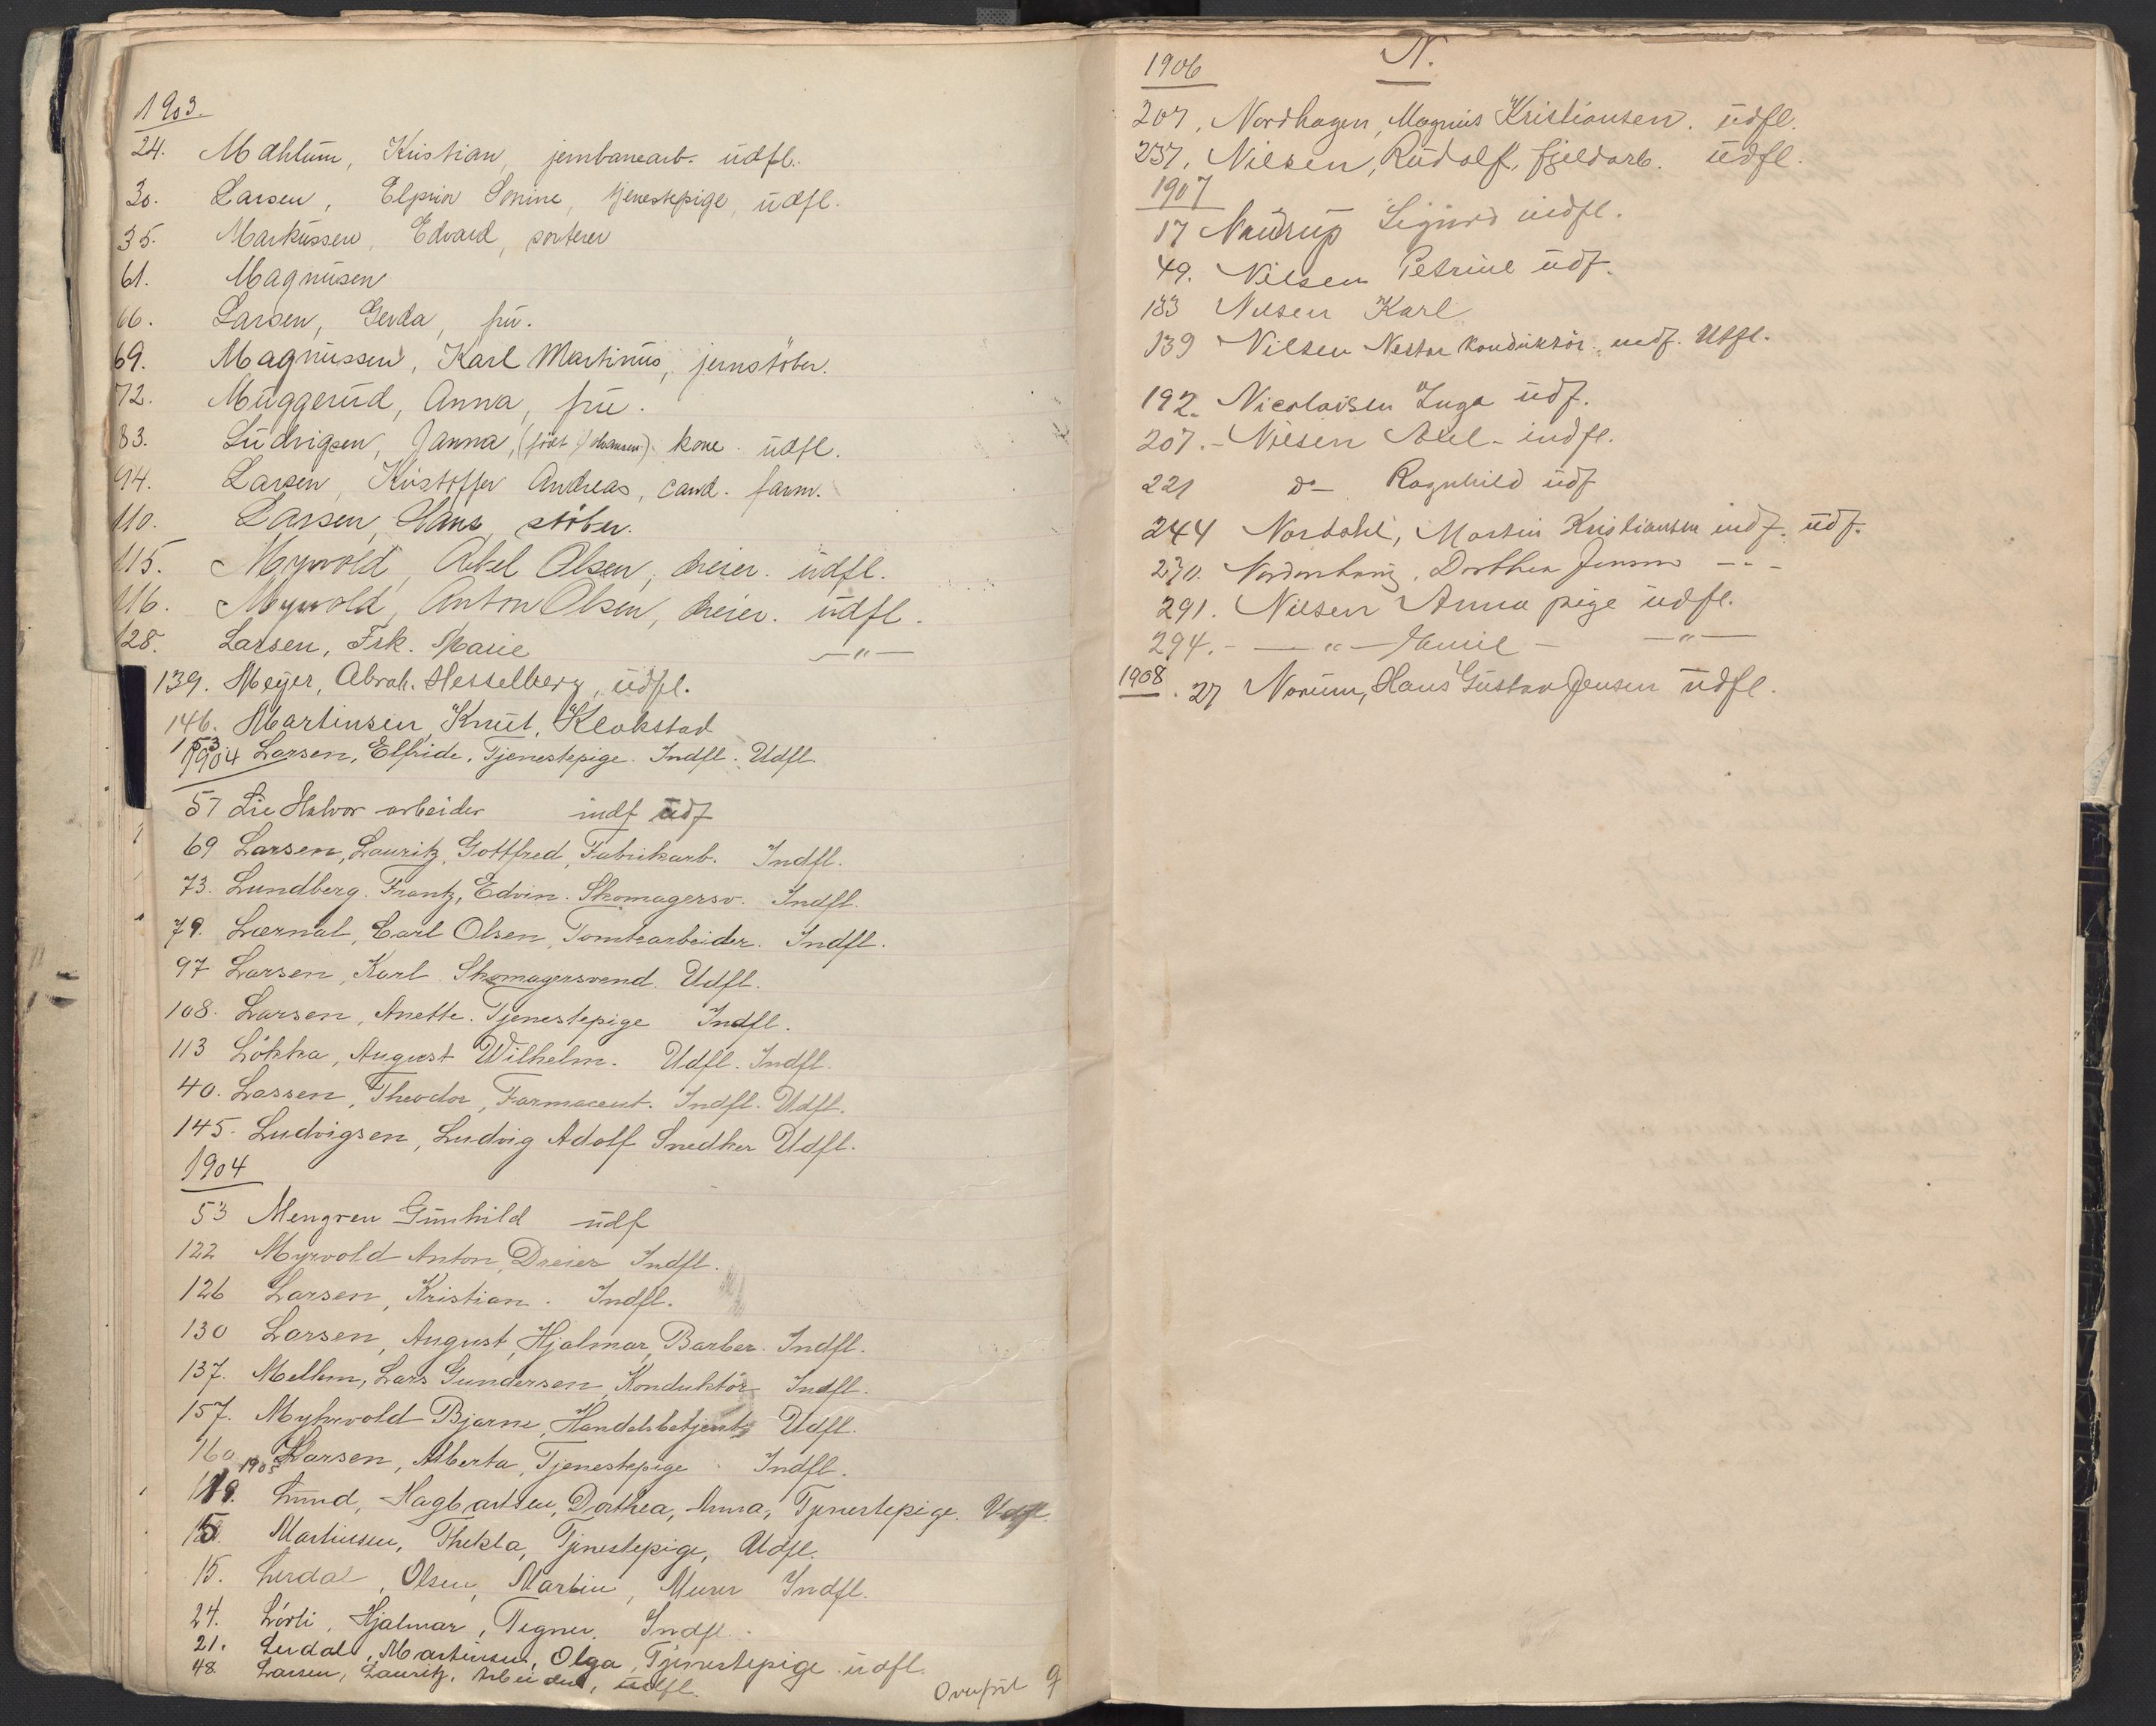 1903.
24. Mæhlum, Kristian, jernbanearb. udfl.
30. Larsen, Elprin Sonine, tjenestepige, udfl.
35. Markussen, Edvard, sorterer
61. Magnusen
66. Larsen, Gerda, fru.
69. Magnussen, Karl Martinus, jernstöber.
72. Muggerud, Anna, fru.
83. Ludvigsen, Janna, (födt Johansen). kone. udfl.
94. Larsen, Kristoffer Andreas, cand. farm.
110. Larsen, Hans, stöber.
115. Myrvold, Abel Olsen, dreier. udfl.
116. Myrvold, Anton Olsen, dreier. udfl.
128. Larsen, Frk. Marie —"—
139. Meyer, Abrah. Hesselberg, udfl.
146. Martinsen, Knut, Klokstad
153 Larsen, Elfride. Tjenestepige. Indfl. Udfl.
1904
57 Lie Halvor arbeider indf udf
69 Larsen, Lauritz, Gottfred, Fabrikarb. Indfl.
73. Lundberg. Frantz, Edvin. Skomagersv. Indfl.
79. Lærnal, Carl Olsen, Tomtearbeider. Indfl.
97 Larsen, Karl. Skomagersvend. Udfl.
108. Larsen, Anette. Tjenestepige Indfl.
113 Lökka, August Wilhelm. Udfl. Indfl.
40. Lassen, Theodor, Farmaceut. Indfl. Udfl.
145. Ludvigsen, Ludvig Adolf Snedker Udfl.
1904
53 Mengren Gunhild udf
122 Myrvold Anton, Dreier Indfl.
126 Larsen, Kristian. Indfl.
130 Larsen, August, Hjalmar, Barber. Indfl.
137. Mellem, Lars Gundersen, Konduktör Indfl.
157. Myhrvold Bjarne, Handelsbetjent Udfl.
160 Larsen, Alberta, Tjenestepige Indfl.
1905
Lund, Hagbartsen, Dorthea, Anna, Tjenestepige. Udfl.
Martinsen, Thekla, Tjenestepige, Udfl.
15. Lerdal, Olsen, Martin, Murer Indfl.
24. Lörli, Hjalmar, Tegner. Indfl.
21. Lerdal, Martinsen, Olga, Tjenestepige. udfl.
48. Larsen, Lauritz, Arbeider, udfl.
9
N.
1906
207. Nordhagen, Magnus Kristiansen. udfl.
237. Nilsen, Rudolf, fjeldarb. udfl.
1907
17 Naudrup Sigurd indfl.
49. Nilsen Petrine udf.
133 Nilsen Karl
139 Nilsen Nestor konduktör. indf. Utfl.
192. Nicolaisen Inga udf.
207. - Nilsen Axel - indfl.
221 do- Ragnhild udf
244 Nordahl, Martin Kristiansen indf. udf.
270. Dorthea Jensen - - -
291. Nilsen Anna pige udfl.
294. - — " — Emil - —"—
1908. 27 Norum, Hans Gustav Jensen udfl.